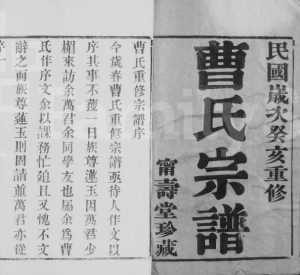 民國歲次癸亥重修
曹氏宗譜
甯壽堂珍藏
曹氏重修宗譜序
今歲春曹氏重修宗譜亟待人作文以
序其事不獲一日族尊蓮玉因萬君少
來訪余萬君余同學友也屬余爲曹
氏作序文余以課務忙廹且又愧不文
辭之而族尊蓮玉則固請並萬君亦從
序一